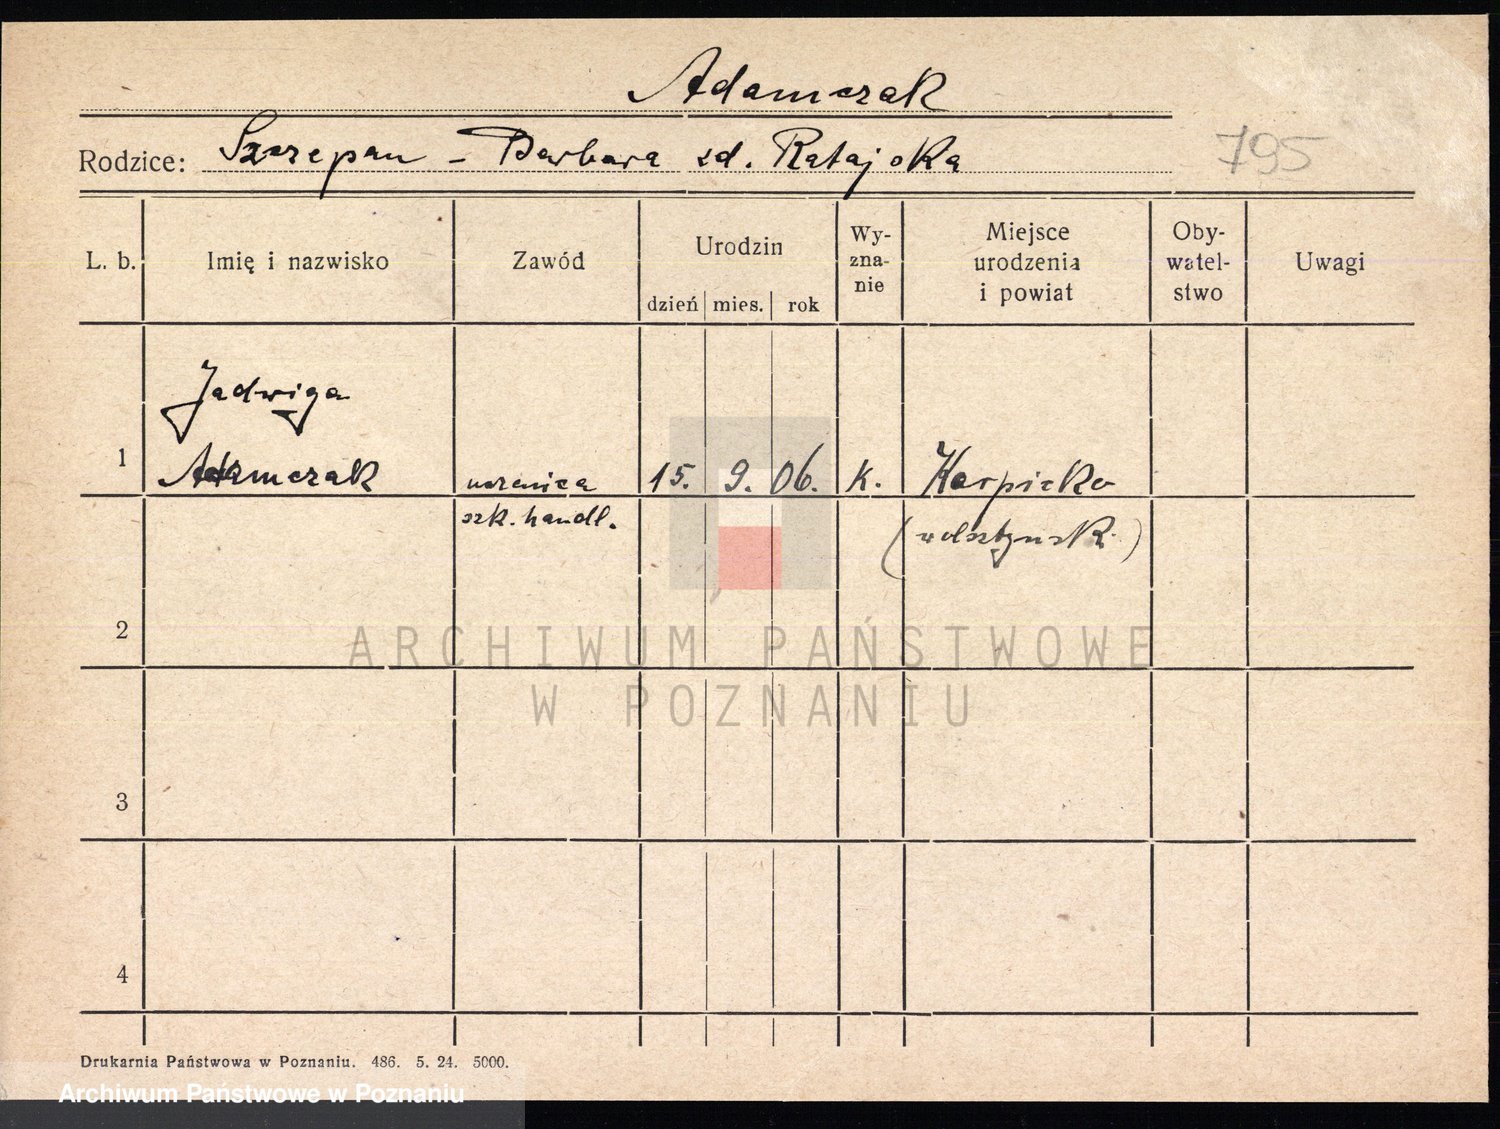 Adamczak
Rodzice: Szczepan - Barbara zd. Ratajska
795
L. b. Imię i nazwisko Zawód Urodzin dzień mies. rok Wy-zna-nie Miejsce urodzenia i powiat Oby-watel-stwo Uwagi
Jadwiga
1 Adamczak uczenica 15. 9. 06. k. Karpicko
szk. handl. (wolsztyńsk.)
2
ARCHIWUM PAŃSTWOWE
W POZNANIU
3
4
Drukarnia Państwowa w Poznaniu. 486. 5. 24. 5000.
Archiwum Państwowe w Poznaniu